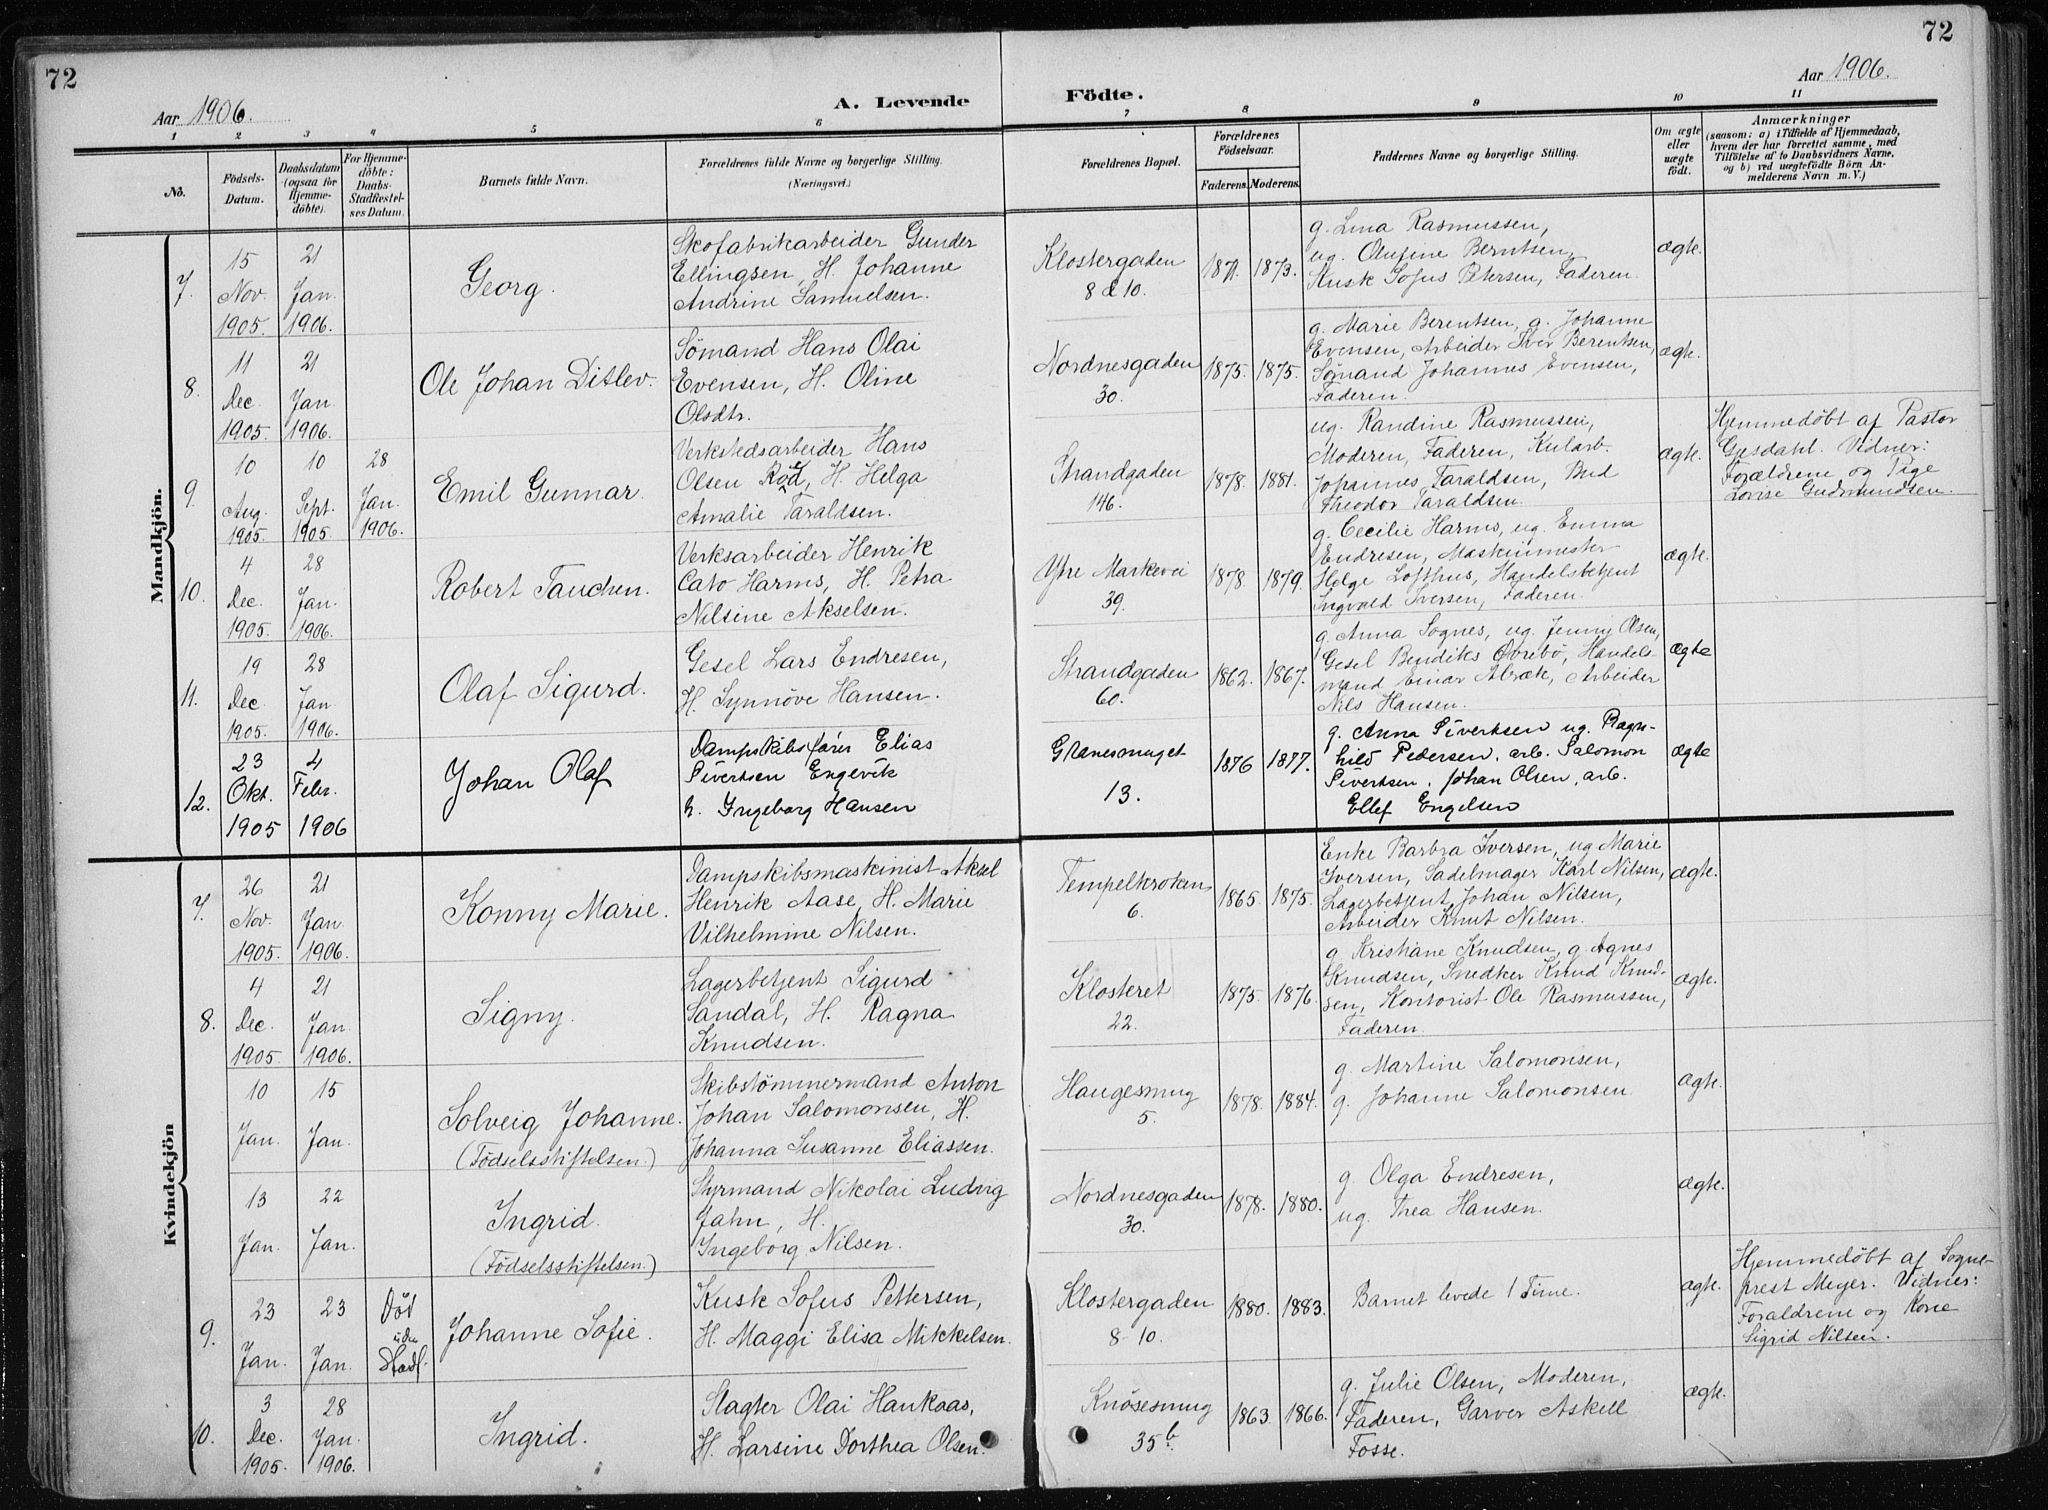 72
72
Aar 1906.
A. Levende
Födte.
Aar 1906.
1 2 3 4 5 6 7 8 9 10 11
No.
Födsels-
Datum.
Daabsdatum
(ogsaa for
Hjemme-
döbte).
For Hjemme-
döbte:
Daabs-
Stadfæstel-
ses Datum.
Barnets fulde Navn.
Forældrenes fulde Navne og borgerlige Stilling.
(Næringsvei.)
Forældrenes Bopæl.
Forældrenes
Födselsaar.
Faderens. Moderens.
Faddernes Navne og borgerlige Stilling.
Om ægte
eller
uægte
födt.
Anmærkninger
(saasom: a) i Tilfælde af Hjemmedaab,
hvem der har forrettet samme, med
Tilföielse af to Daabsvidners Navne,
og b) ved uægtefödte Börn An-
melderens Navn m. V.)
Mandkjön.
7.
15
Nov.
1905.
21
Jan.
1906.
Georg.
Skofabrikarbeider Gunder
Ellingsen, H. Johanne
Andrine Samuelsen.
Klostergaden
8 & 10.
1871. 1873.
g. Lina Rasmussen,
ug. Olufine Berntsen,
Kusk Sofus Petersen, Faderen.
ægte.
8.
11
Dec.
1905.
21
Jan.
1906.
Ole Johan Ditlev.
Sömand Hans Olai
Evensen, H. Oline
Olsdtr.
Nordnesgaden
30.
1875. 1875.
g. Marie Berentsen, g. Johanne
Evensen, Arbeider Iver Berentsen,
Sömand Johannes Evensen,
Faderen.
ægte.
9.
10
Aug.
1905.
10
Sept.
1905
28
Jan.
1906.
Emil Gunnar.
Verkstedsarbeider Hans
Olsen Röd, H. Helga
Amalie Taraldsen.
Strandgaden
146.
1878. 1881.
ug. Randine Rasmussen,
Moderen, Faderen, Kularb.
Johannes Taraldsen, Bud
Theodor Taraldsen.
ægte.
Hjemmedøbt af Pastor
Gjesdahl. Vidner:
Forældrene og Pige
Lovise Gudmundsen.
10.
4
Dec.
1905.
28
Jan.
1906.
Robert Tauchen.
Verksarbeider Henrik
Cato Harms, H. Petra
Nilsine Akselsen.
Ytre Markevei
39.
1878. 1879.
g. Cecilie Harms, ug. Emma
Endresen, Maskinmester
Helge Lofthus, Handelsbetjent
Ingvald Iversen, Faderen.
ægte.
11.
19
Dec.
1905.
28
Jan.
1906.
Olaf Sigurd.
Gesel Lars Endresen,
H. Synnöve Hansen.
Strandgaden
60.
1862. 1867.
g. Anna Sognes, ug. Jenny Olsen,
Gesel Bendiks Övrebö, Handels-
mand Einar Alræk, Arbeider
Nils Hansen.
ægte
12.
23
Okt.
1905
4
Febr.
1906
Johan Olaf
Dampskibsfører Elias
Sivertsen Engevik
h. Ingeborg Hansen
Granesmuget
13.
1876 1877.
g. Anna Sivertsen ug. Ragn-
hild Pedersen. arb. Salomon
Sivertsen. Johan Olsen, arb.
Ellef Engelsen
ægte
Kvindekjön
7.
26
Nov.
1905.
21
Jan.
1906.
Konny Marie.
Dampskibsmaskinist Aksel
Henrik Aase, H. Marie
Vilhelmine Nilsen.
Tempelkroken
6.
1865. 1875.
Enke Barbra Iversen, ug Marie
Iversen, Sadelmager Karl Nilsen,
Lagerbetjent Johan Nilsen,
Arbeider Knut Nilsen.
ægte.
8.
4
Dec.
1905.
21
Jan.
1906.
Signy.
Lagerbetjent Sigurd
Sandal, H. Ragna
Knudsen.
Klosteret
22.
1875. 1876.
g. Kristiane Knudsen, g. Agnes
Knudsen, Snedker Knud Knud-
sen, Kontorist Ole Rasmussen,
Faderen.
ægte.
10
Jan.
15
Jan.
Solveig Johanne.
(Födselsstiftelsen.)
Skibstömmermand Anton
Johan Salomonsen, H.
Johanna Susanne Eliassen.
Haugesmug
5.
1878. 1884.
g. Martine Salomonsen,
g. Johanne Salomonsen
ægte.
13
Jan.
22
Jan.
Ingrid.
(Födselsstiftelsen.)
Styrmand Nikolai Ludvig
Jahn, H.
Ingeborg Nilsen.
Nordnesgaden
30.
1878. 1880.
g. Olga Endresen,
ug. Thea Hansen.
ægte.
9.
23
Jan.
23
Jan.
Död
uden
Stadf.
Johanne Sofie.
Kusk Sofus Pettersen,
H. Maggi Elisa Mikkelsen.
Klostergaden
8-10.
1880. 1883.
Barnet levede 1 Time.
ægte.
Hjemmedøbt af Sogne-
prest Meyer. Vidner:
Forældrene og Kone
Sigrid Nilsen.
10.
3
Dec.
1905.
28
Jan.
1906.
Ingrid.
Slagter Olai Haukaas,
H. Larsine Dorthea Olsen.
Knösesmug
35 b.
1863. 1866.
g. Julie Olsen, Moderen,
Faderen, Garver Askell
Fosse.
ægte.